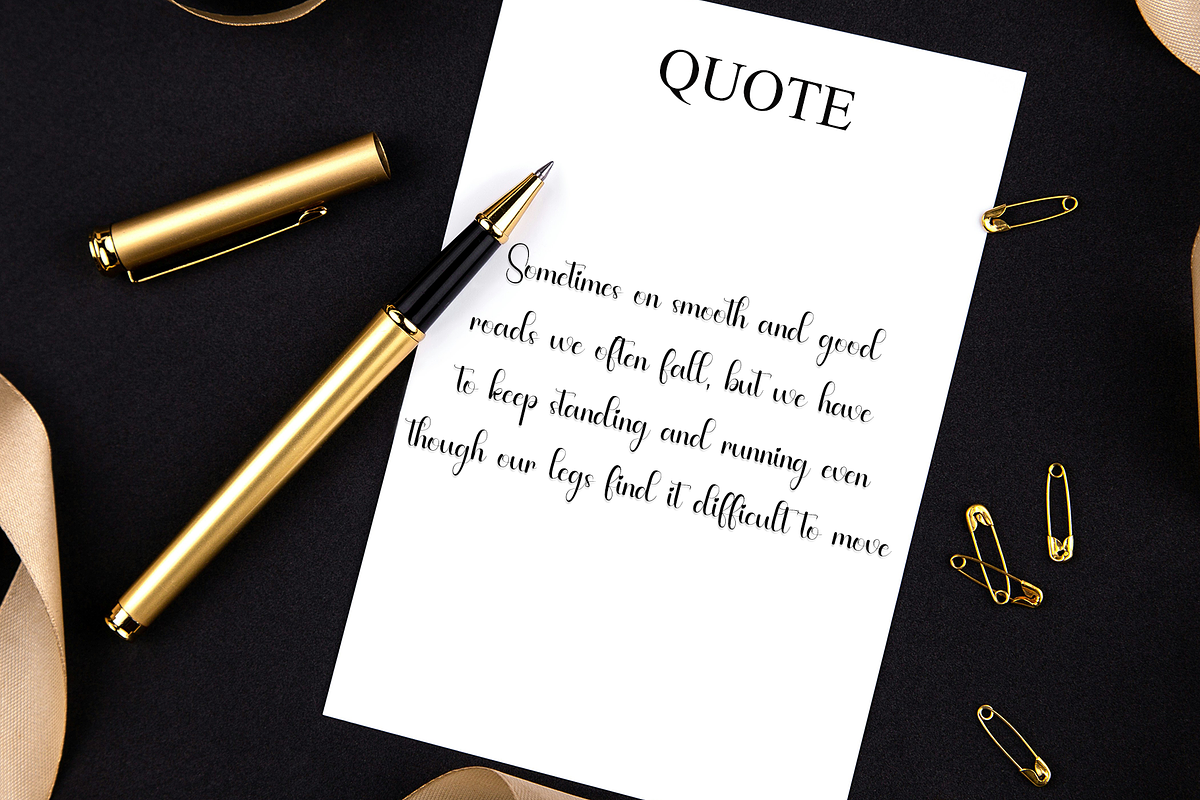 QUOTE
Sometimes on smooth and good
roads we often fall, but we have
to keep standing and running even
though our legs find it difficult to move